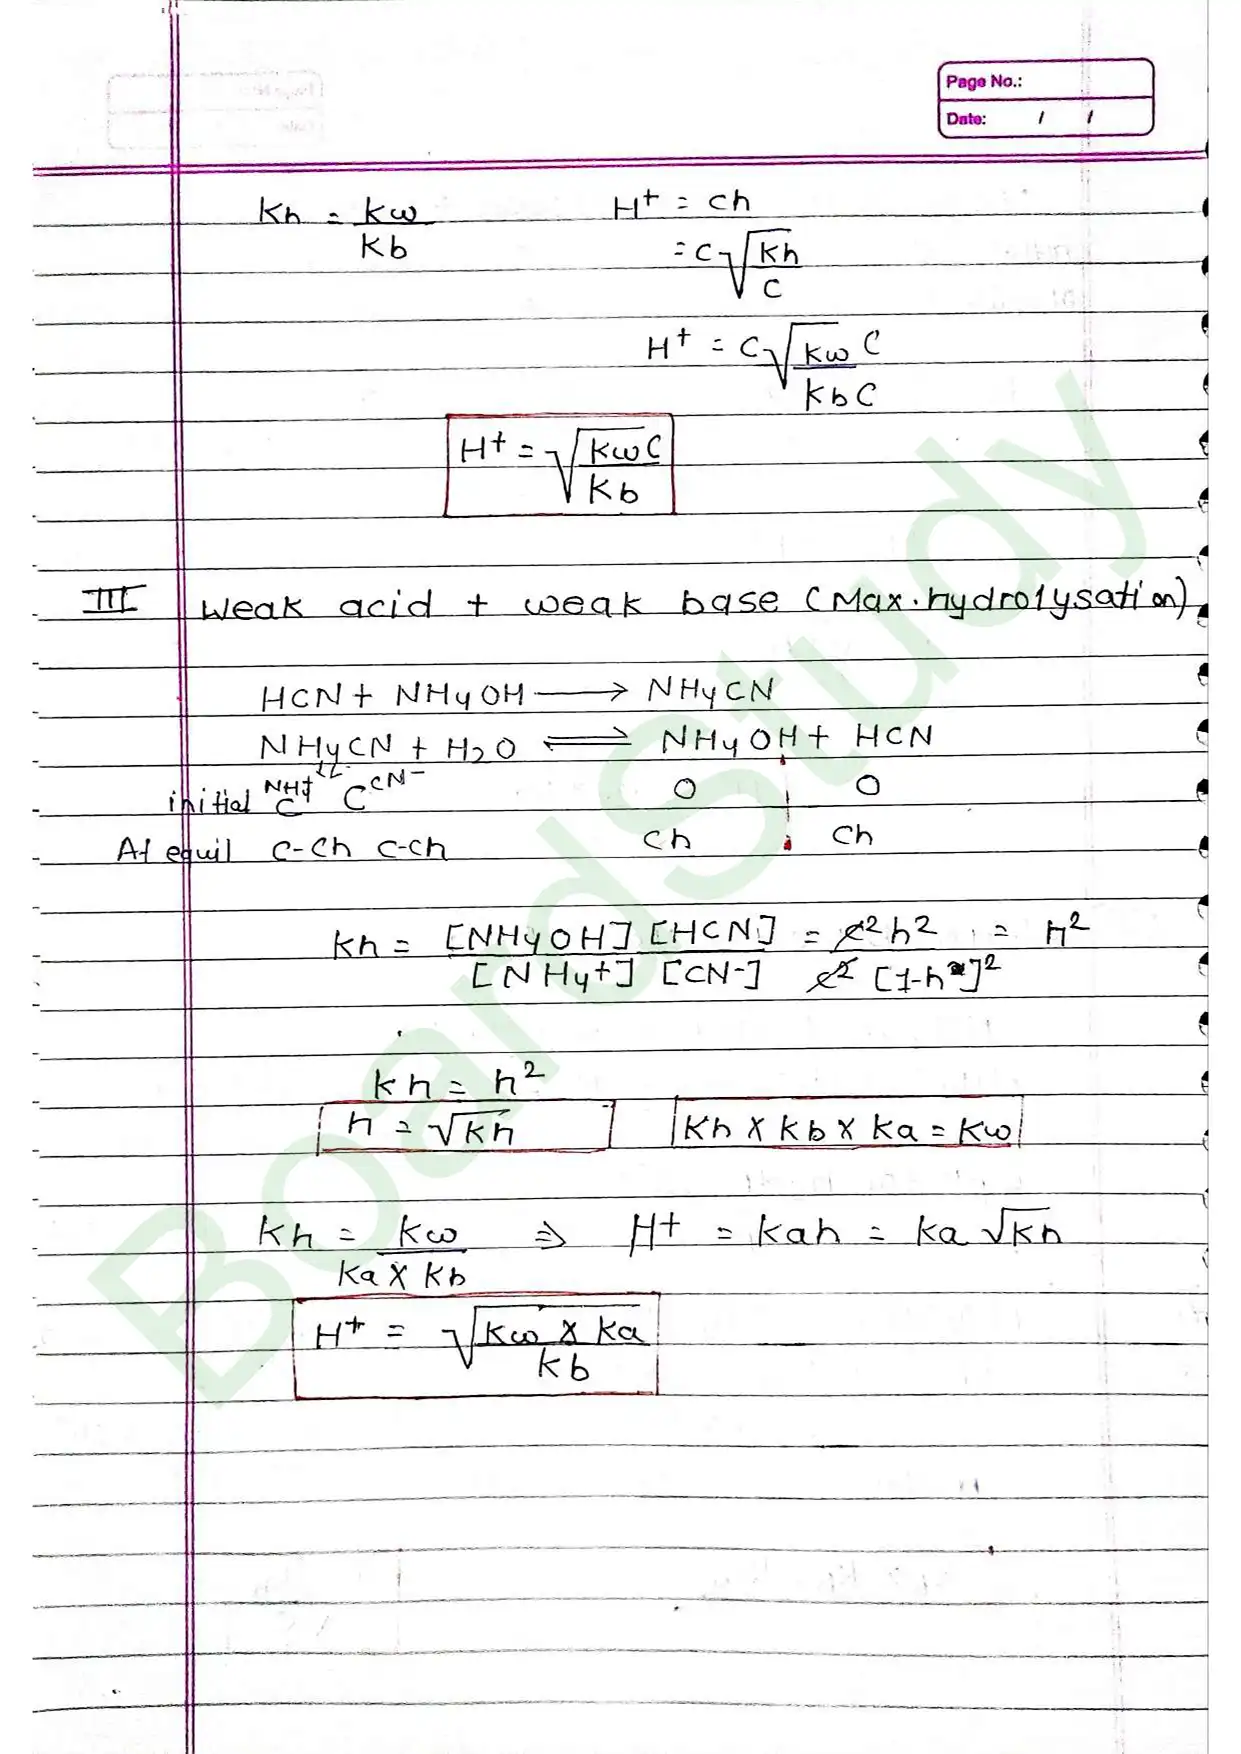 Page No.:
Date: / /
Kh = Kw/Kb    H+ = ch
= c√(Kh/C)
H+ = C√(Kw C/Kb C)
H+ = √(KwC/Kb)
III Weak acid + weak base (Max. hydrolysation)
HCN + NH4OH ⟶ NH4CN
NH4CN + H2O ⇌ NH4OH + HCN
NH4+ CN-
initial C C 0 0
At equil C-Ch C-Ch Ch Ch
Kh = [NH4OH] [HCN]/[NH4+] [CN-] = c²h²/c² [1-h]² = h²
Kh = h²
h = √Kh    Kh X Kb X Ka = Kw
Kh = Kw/Ka X Kb ⇒ H+ = Kah = Ka √Kh
H+ = √(Kw X Ka/Kb)
BoardStudy